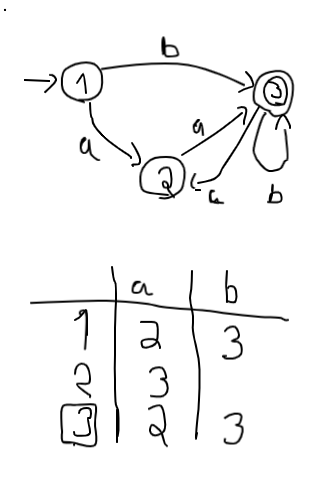 b
1
3
a
a
2
a
b
a b
1 2 3
2 3
3 2 3